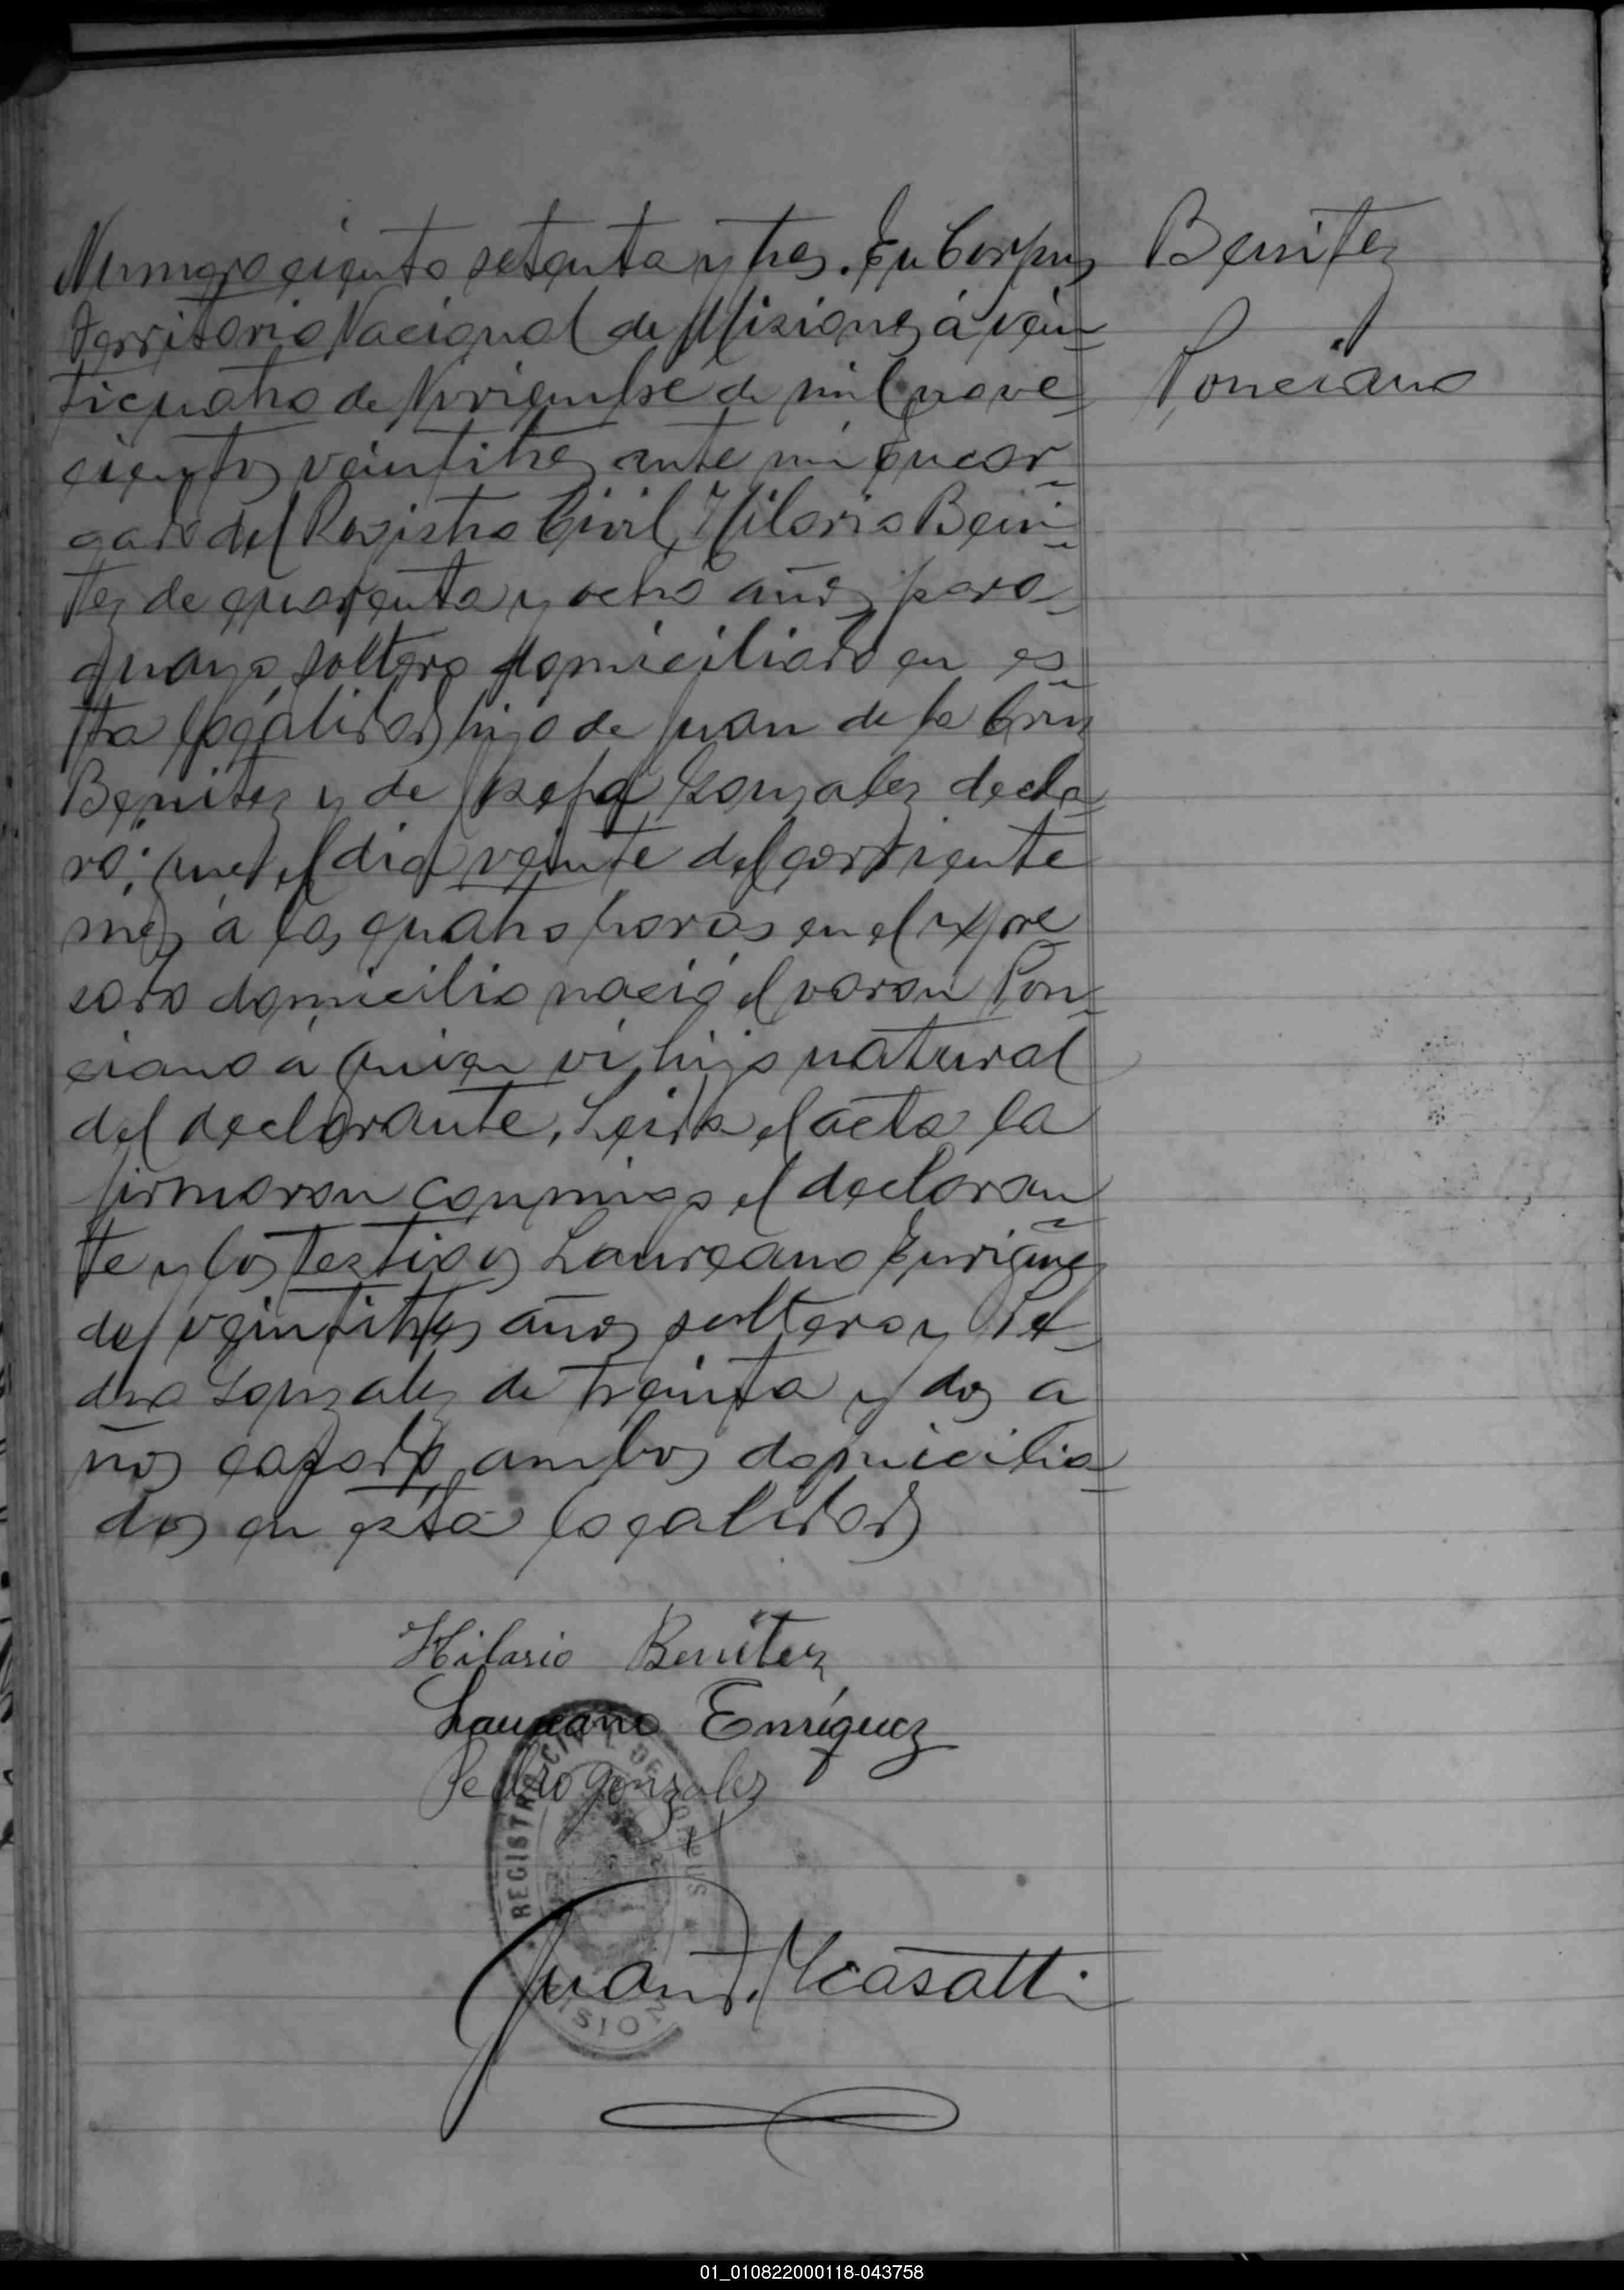 Benitez
Ponciano
Numero ciento setenta y tres. En Corpus
territorio Nacional de Misiones á vein
ticuatro de Noviembre de mil nove
cientos veintitres ante mi Encar
gado del Registro Civil, Hilario Beni
tez de cuarenta y ocho años para
guayo soltero domiciliado en es
ta localidad hijo de Juan de la Cruz
Benitez y de Josefa Gonzalez decla
ró: que el dia veinte del corriente
mes á las cuatro horas en el expre
sado domicilio nació el varon Pon
ciano á quien vi, hijo natural
del declarante. Leida el acta la
firmaron conmigo el declaran
te y los testigos Laureano Enriquez
de veintitres años soltero y Pe
dro Gonzalez de treinta y dos a
ños casado, ambos domicilia
dos en esta localidad
Hilario Benitez
Laureano Enríquez
Pedro gonzalez
REGISTRO CIVIL DE CORPUS
MISIONES
Juan
01_010822000118-043758